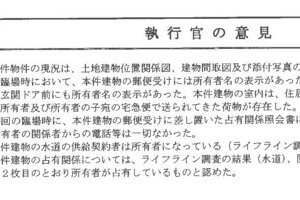 執行官の意見
件物件の現況は、土地建物位置関係図、建物間取図及び添付写真の
臨場時において、本件建物の郵便受けには所有者名の表示があった
玄関ドア前にも所有者名の表示があった。本件建物の室内は、住居
所有者及び所有者の子宛の宅急便で送られてきた荷物が存在した。
回の臨場時に、本件建物の郵便受けに差し置いた占有関係照会書に
有者の関係者からの電話等は一切なかった。
件建物の水道の供給契約者は所有者になっている（ライフライン調
件建物の占有関係については、ライフライン調査の結果（水道）、
２枚目のとおり所有者が占有しているものと認めた。